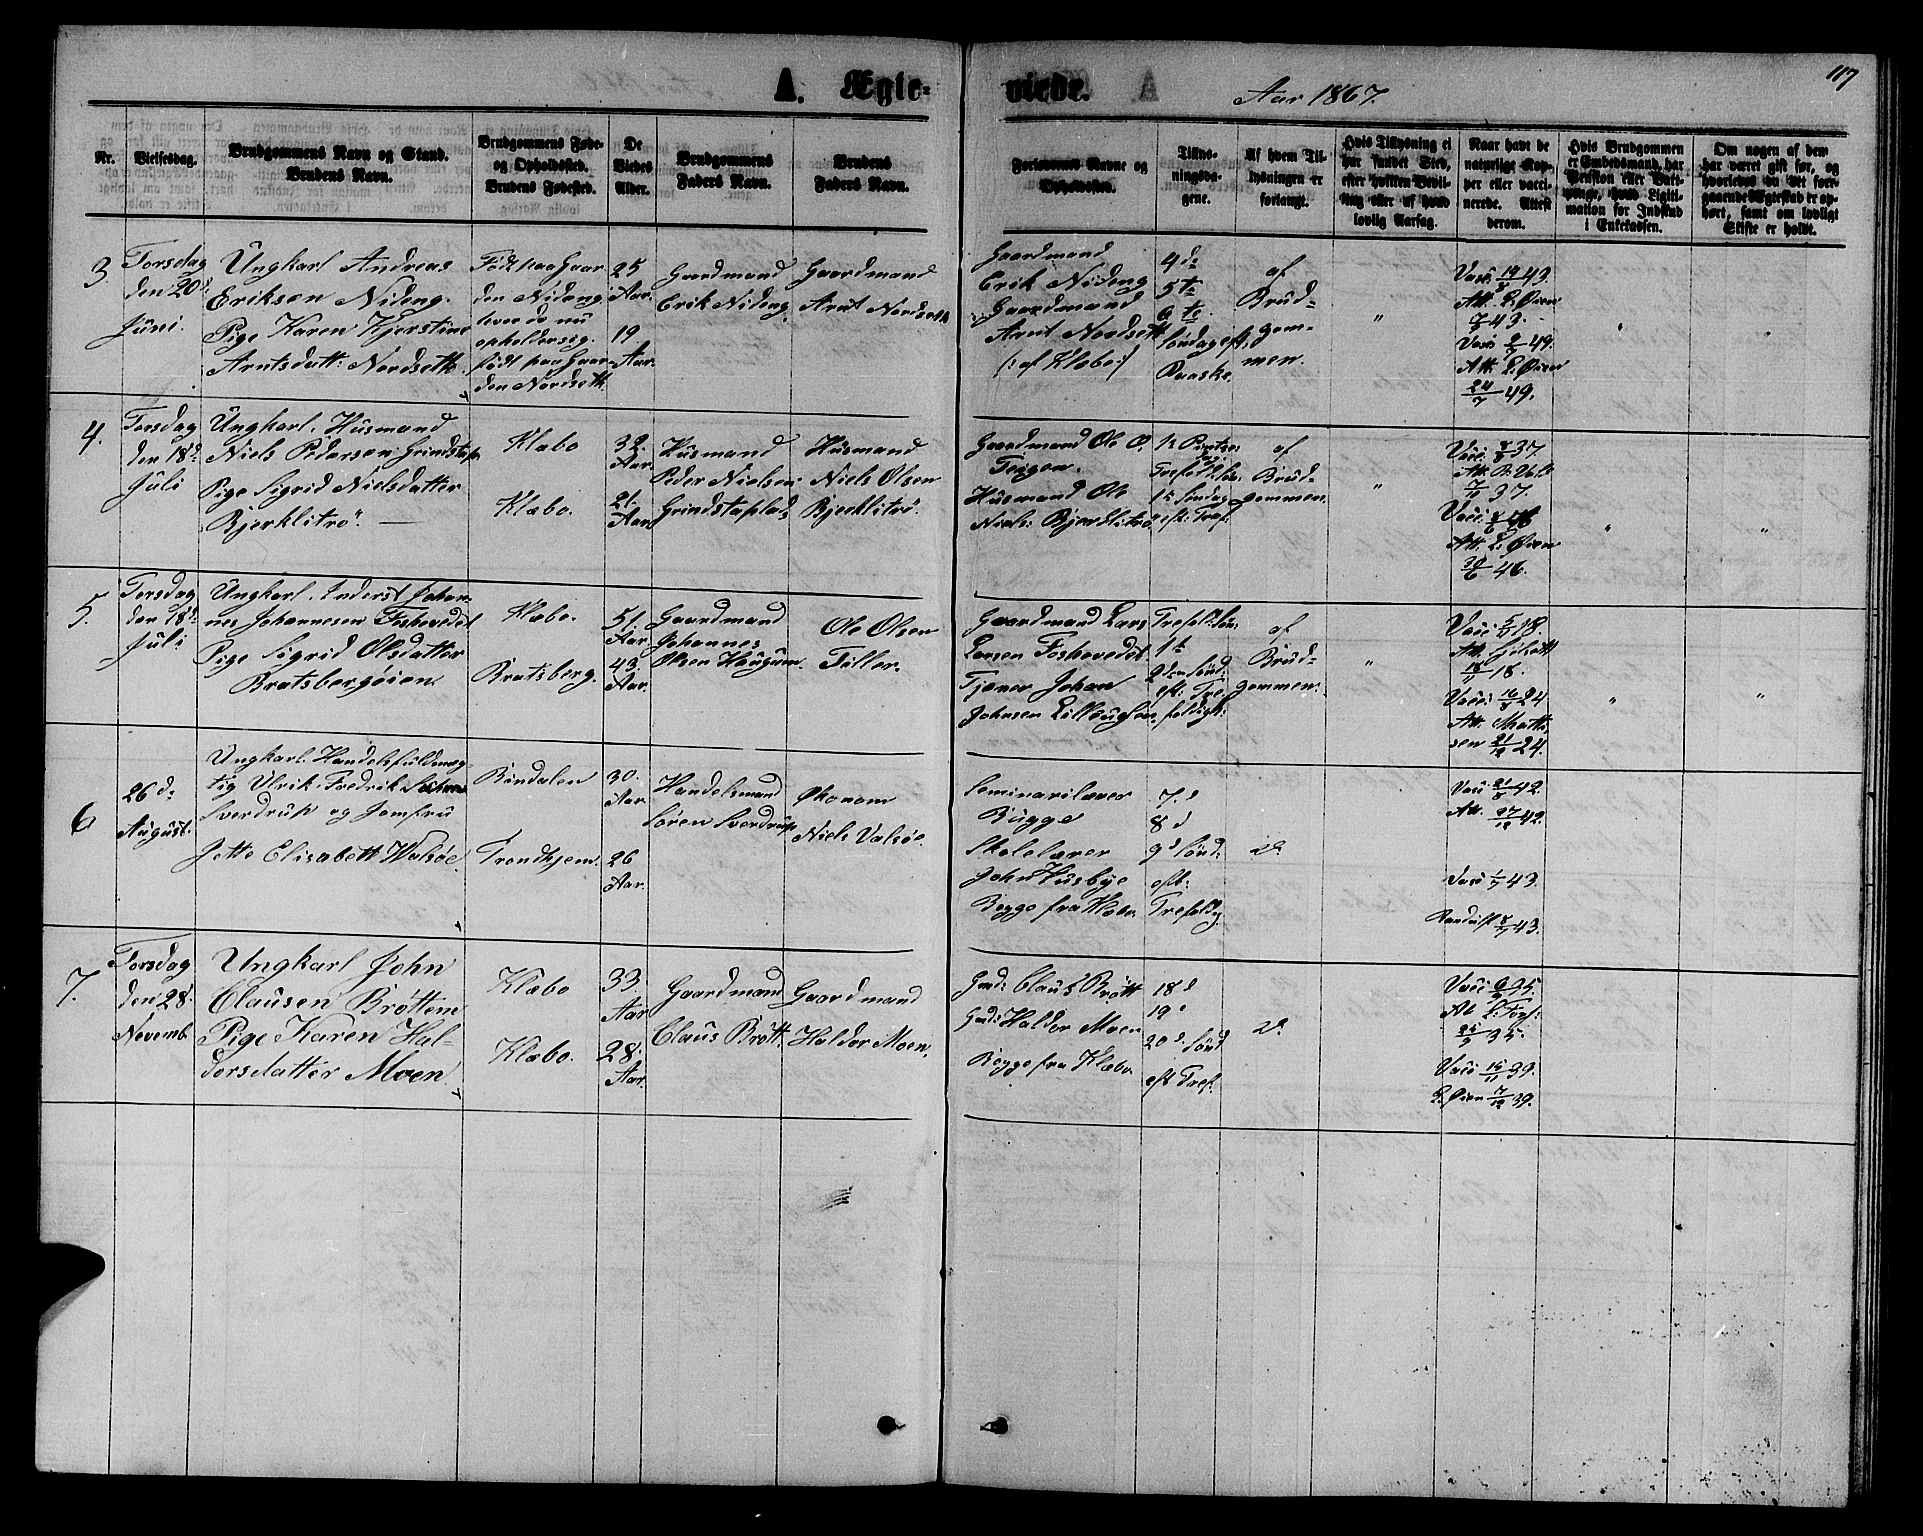 117
A. Ægte-
viede.
Aar 1867.
Nr.
Vielsesdag.
Brudgommens Navn og Stand.
Brudens Navn.
Brudgommens Føde-
og Opholdssted.
Brudens Fødested.
De
Viedes
Alder.
Brudgommens
Faders Navn.
Brudens
Faders Navn.
Forlovernes Navne og
Opholdssted.
Tillys-
ningsda-
gene.
Af hvem Til-
lysningen er
forlangt.
Hvis Tillysning ei
har fundet Sted,
efter hvilken Bevil-
ling eller af hvad
lovlig Aarsag.
Naar havt de
naturlige Kop-
per eller vacci-
nerede. Attest
derom.
Hvis Brudgommen
er Embedsmand, har
Pension eller Vart-
penge, hvad Legiti-
mation for Indskud
i Enkekassen.
Om nogen af dem
har været gift før, og
hvorledes da det fore-
gaaende Egteskab er op-
hørt, samt om lovligt
Skifte er holdt.
3.
Torsdag
den 20d
Juni.
Ungkarl Andreas
Eriksen Nideng.
Pige Karen Kjerstine
Arntsdatt: Nordseth.
Födt paa Gaar
den Nideng
hvor de nu
opholder sig.
födt paa Gaar-
den Nordseth.
25
Aar.
19
Aar.
Gaardmand
Erik Nideng.
Gaardmand
Arnt Nordseth
Gaardmand
Erik Nideng
Gaardmand
Arnt Nordseth
(: af Klæbo :)
4de
5te
6te
Söndag eft.
Paaske.
af
Brud-
gom-
men.
"
Vacc. 19/8 43.
Att. L. Øien
7/9 43.
Vacc. 2/7 49.
Att. L. Øien
24/7 49.
"
"
4.
Torsdag
den 18d
Juli
Ungkarl. Husmand
Niels Pedersen Grindstapl.
Pige Sigrid Nielsdatter
Bjerklitrö.
Klæbo
Klæbo.
32.
Aar.
21.
Aar
Husmand
Peder Nielsen
Grindstaplads
Husmand
Niels Olsen
Bjerklitrö.
Gaardmand Ole O.
Teigen.
Husmand Ole
Niels: Bjerklitrö
1ste Söndag
eft: Tref:
af
Brud-
gommen.
"
37.
Att. L. Øien
30/6 46.
"
"
5.
Torsdag
den 18d
Juli
Ungkarl. Inderst Johan-
nes Johannesen Foshovedet
Pige Sigrid Olsdatter
Bratsbergöien
Klæbo.
Bratsberg.
51.
Aar.
43.
Aar.
Gaardmand
Johannes
Olsen Haugum.
Ole Olsen
Tiller.
Gaardmand Lars
Larsen Foshovedet
Tjener Johan
Johnsen Lilleugla
Trefold: Sön:
1te
2den Sönd
eft: Tre
foldigh:
af
Brud-
gommen.
"
Vacc 5/11 18.
18/11 18.
Vacc: 16/8 24
Att. Matthi
sen 21/12 24.
"
"
6
26d
August.
Ungkarl. Handelsfuldmæg-
tig Ulrik Fredrik
Sverdrup og Jomfru
Jette Elisabett Walsöe.
Bindalen
Trondhjem.
30.
Aar.
26
Aar.
Handelsmand
Sören Sverdrup
Økonom
Niels Valsöe.
Seminarilærer
Bugge
Skolelærer
John Husbye
Begge fra Klæbo
7d
8d
9d Sönd:
eft:
Trefoldg.
do
Vacc 21/8 42.
Att. 27/12 42.
Vacc 1/7 43.
Randulf 8/7 43.
7.
Torsdag
den 28.
Novemb.
Ungkarl John
Clausen Bröttem
Pige Karen Hal-
dorsdatter Moen
Klæbo
Klæbo.
33.
Aar
28.
Aar.
Gaardmand
Claus Brött.
Gaardmand
Haldor Moen.
Gmd: Claus Brött
Gmd: Haldor Moen
Begge fra Klæbo
18d
19d
20d Sönd
eft Tref.
do
35.
Vacc 15/11 39.
L. Øien 7/12 39.